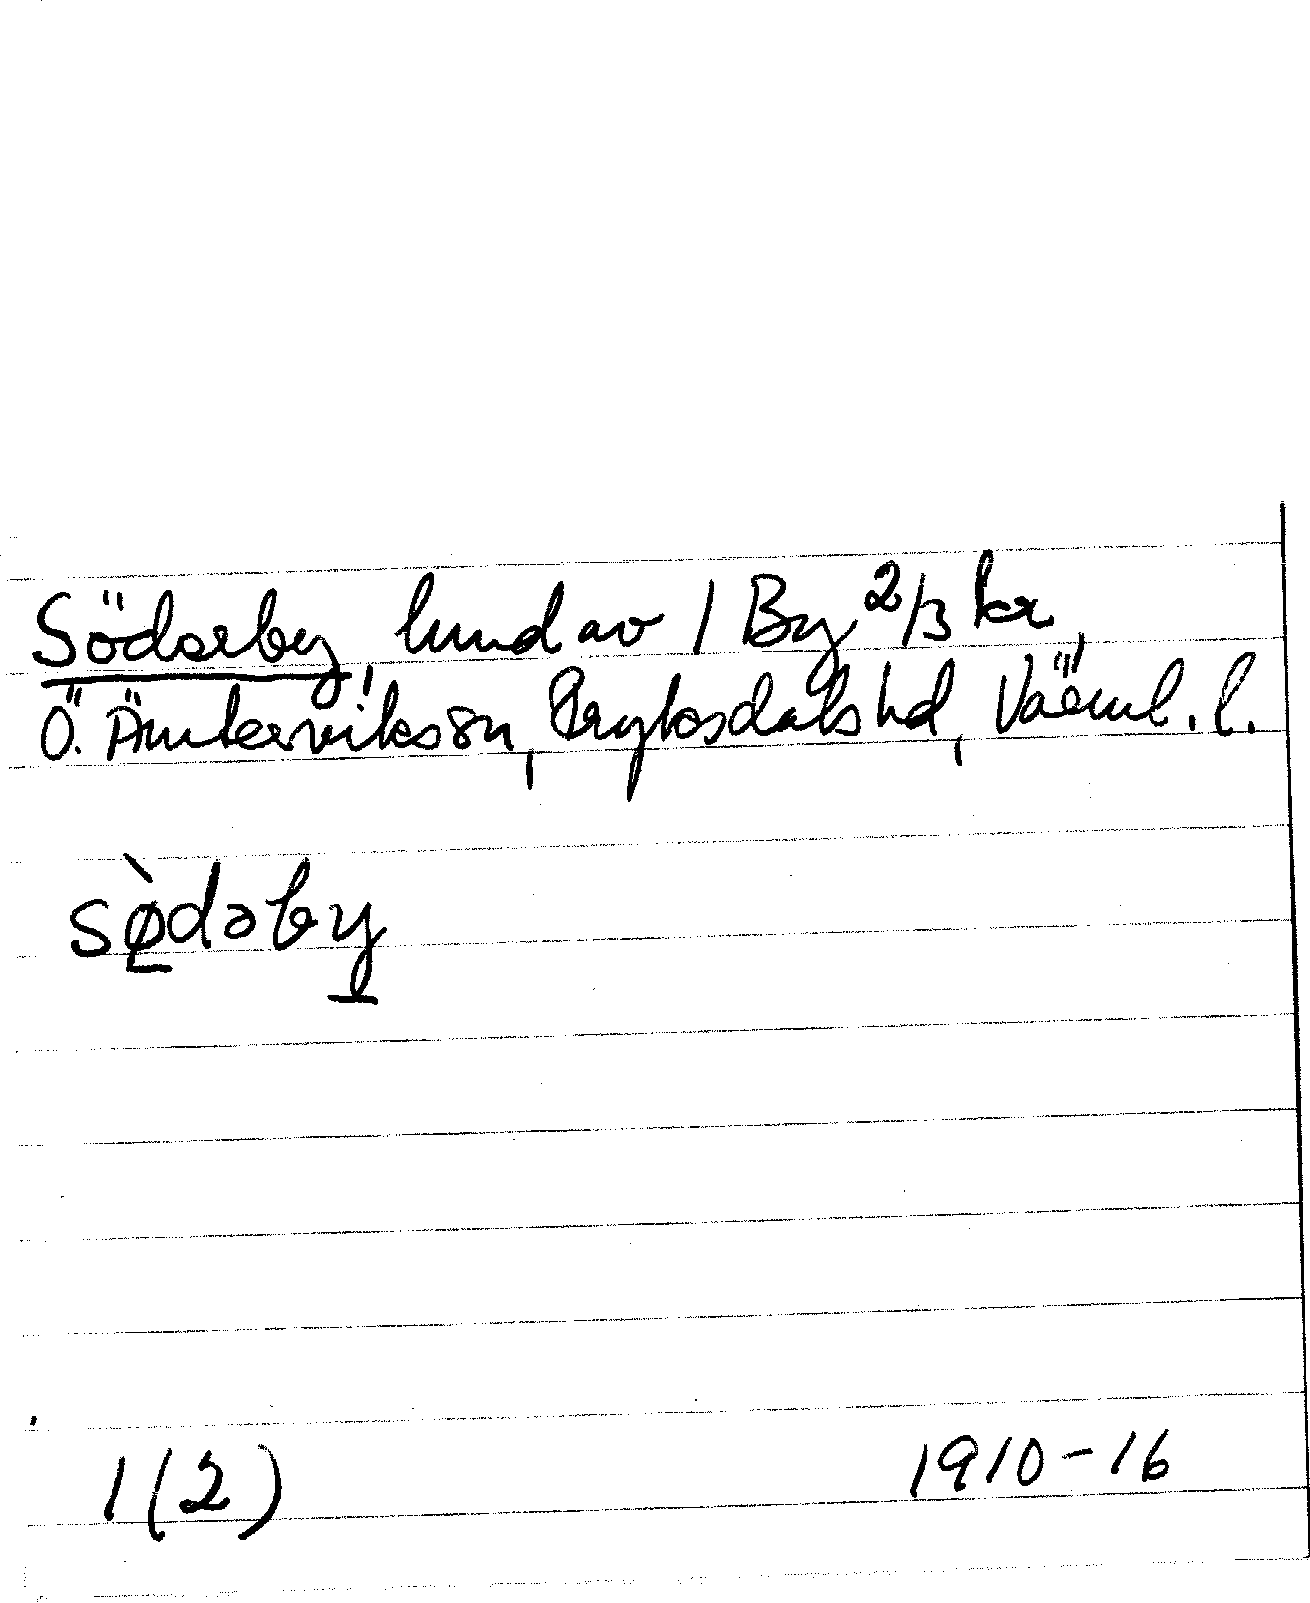 Söderby, lund av 1 By 2/3 kr,
Ö. Ämterviks sn, Fryksdals hd, Värml. l.
sø̀dəby
1(2) 1910-16